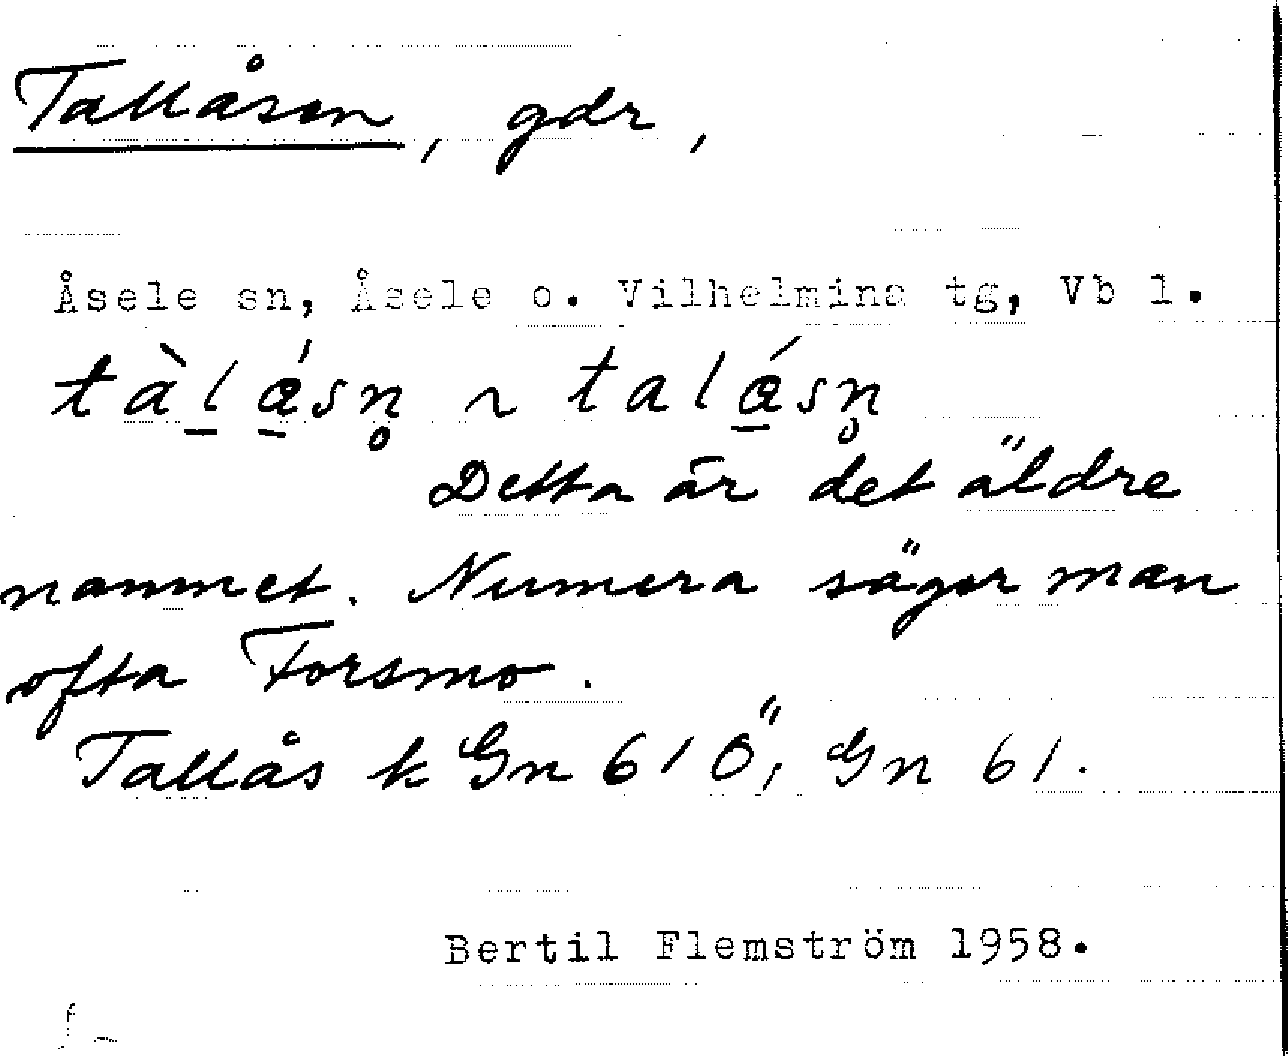 Tallåsen, gdr,
Åsele sn, Åsele o. Vilhelmina tg, Vb l.
tàl̲ á̲sn̥ ~ talá̲sn̥
Detta är det äldre
namnet. Numera säger man
ofta Forsmo.
Tallås k Gn 61 Ö, Gn 61.
Bertil Flemström 1958.